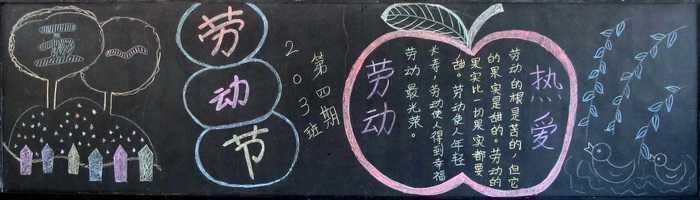 五
一
劳
动
节
第四期
203班
热爱
劳动的根是苦的，但它
的果实是甜的。劳动的
果实比一切果实都要
甜。劳动使人年轻
长寿，劳动使人得到幸福
劳动最光荣。
劳动